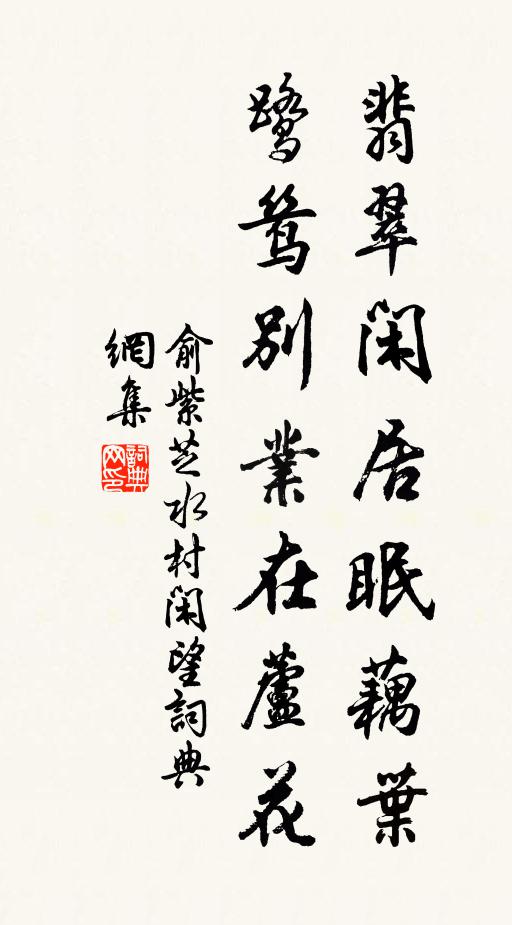 翡翠閑居眠藕葉
鷺鴛別業在蘆花
俞紫芝水村閑望詞典
網集
詞典
网印